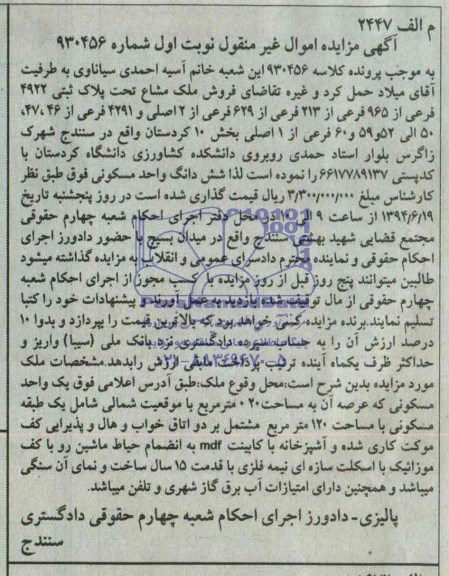 م الف ۲۴۴۷
آگهی مزایده اموال غیر منقول نوبت اول شماره ۹۳۰۴۵۶
به موجب پرونده کلاسه ۹۳۰۴۵۶ این شعبه خانم آسیه احمدی سیاناوی به طرفیت
آقای میلاد حمل کرد و غیره تقاضای فروش ملک مشاع تحت پلاک ثبتی ۴۹۲۲
فرعی از ۹۶۵ فرعی از ۲۱۳ فرعی از ۶۲۹ فرعی از ۲ اصلی و ۴۲۹۱ فرعی از ۴۶، ۴۷،
۵۰ الی ۵۲ و ۵۹ و ۶۰ فرعی از ۱ اصلی بخش ۱۰ کردستان واقع در سنندج شهرک
زاگرس بلوار استاد حمدی روبروی دانشکده کشاورزی دانشگاه کردستان با
کدپستی ۶۶۱۷۷۸۹۱۳۷ را نموده است لذا شش دانگ واحد مسکونی فوق طبق نظر
کارشناس مبلغ ۳/۳۰۰/۰۰۰/۰۰۰ ریال قیمت گذاری شده است در روز پنجشنبه تاریخ
۱۳۹۴/۶/۱۹ از ساعت ۹ الی ۱۰ در محل دفتر اجرای احکام شعبه چهارم حقوقی
مجتمع قضایی شهید بهشتی سنندج واقع در میدان بسیج با حضور دادورز اجرای
احکام حقوقی و نماینده محترم دادسرای عمومی و انقلاب به مزایده گذاشته میشود
طالبین میتوانند پنج روز قبل از روز مزایده با کسب مجوز از اجرای احکام شعبه
چهارم حقوقی از مال توقیف شده بازدید به عمل آورند و پیشنهادات خود را کتبا
تسلیم نمایند.برنده مزایده کسی خواهد بود که بالاترین قیمت را بپردازد و بدوا ۱۰
درصد ارزش آن را به حساب سپرده دادگستری نزد بانک ملی (سیبا) واریز و
حداکثر ظرف یکماه آینده ترتیب پرداخت مابقی ارزش رابدهد.مشخصات ملک
مورد مزایده بدین شرح است:محل وقوع ملک:طبق آدرس اعلامی فوق یک واحد
مسکونی که عرصه آن به مساحت ۲۰۲۰ مترمربع با موقعیت شمالی شامل یک طبقه
مسکونی با مساحت ۱۲۰ متر مربع مشتمل بر دو اتاق خواب و هال و پذیرایی کف
موکت کاری شده و آشپزخانه با کابینت mdf به انضمام حیاط ماشین رو با کف
موزائیک با اسکلت سازه ای نیمه فلزی با قدمت ۱۵ سال ساخت و نمای آن سنگی
میباشد و همچنین دارای امتیازات آب برق گاز شهری و تلفن میباشد.
پالیزی- دادورز اجرای احکام شعبه چهارم حقوقی دادگستری
سنندج